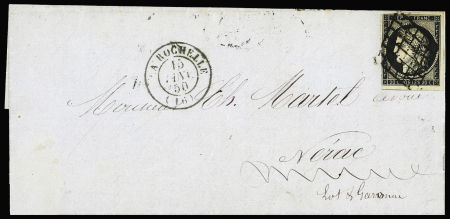 LA ROCHELLE
15
JANV.
50
(16)
Monsieur Ch. Martel avoué
Nérac
Lot & Garonne